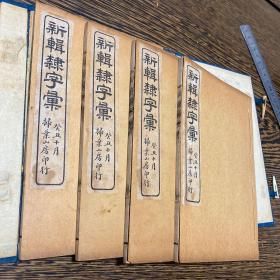 新輯隸字彙
癸丑十月
掃葉山房印行
新輯隸字彙
癸丑十月
掃葉山房印行
新輯隸字彙
癸丑十月
掃葉山房印行
新輯隸字彙
癸丑十月
掃葉山房印行